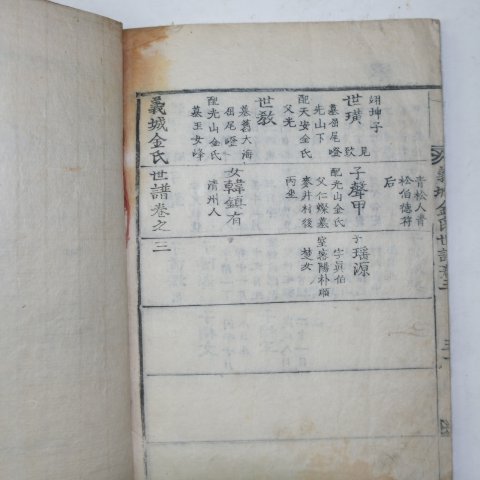 翊坤子 見
世璜 致
墓屈尾嶝
先山下
配天安金氏
父光
世敎
墓舊大海
屈尾嶝
配光山金氏
墓玉女峰
青松人青
松伯德符
后
子聲甲
配光山金氏
父仁燦墓
麥井村後
丙坐
女韓鎮有
清州人
子瑶源
字眞伯
室密陽朴順
楚女
義城金氏世譜卷之三
義城金氏世譜卷三